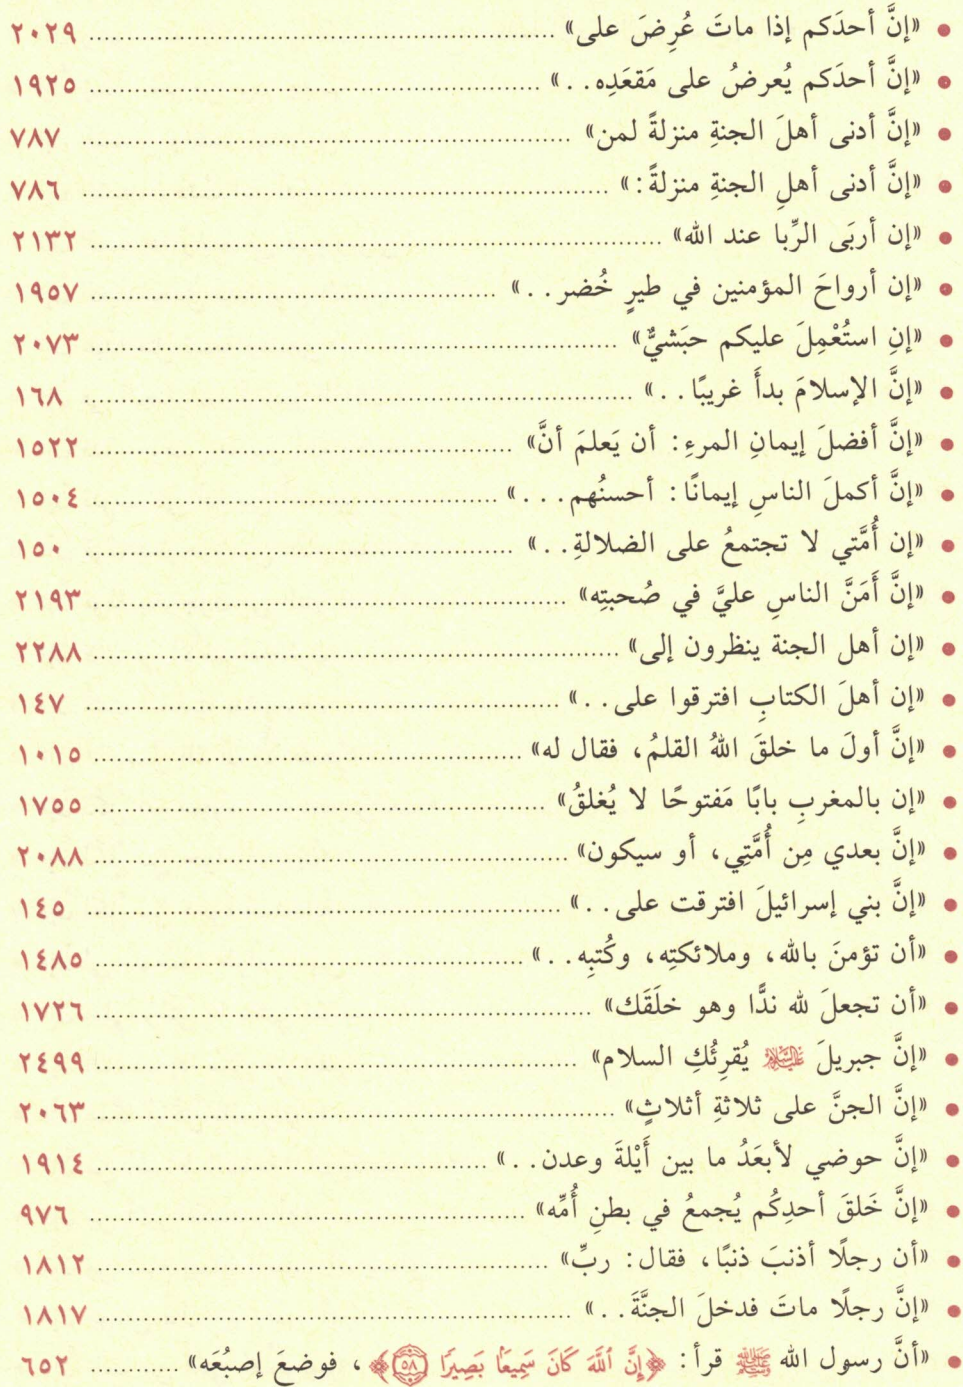 • «إنَّ أحدَكم إذا ماتَ عُرِضَ على» ........ ٢٠٢٩
• «إنَّ أحدَكم يُعرضُ على مَقعَدِه. .» ........ ١٩٢٥
• «إنَّ أدنى أهلَ الجنةِ منزلةً لمن» ........ ٧٨٧
• «إنَّ أدنى أهلِ الجنةِ منزلةً:» ........ ٧٨٦
• «إن أربَى الرِّبا عند الله» ........ ٢١٣٢
• «إن أرواحَ المؤمنين في طيرٍ خُضر. .» ........ ١٩٥٧
• «إنِ استُعْمِلَ عليكم حبَشيٌّ» ........ ٢٠٧٣
• «إنَّ الإسلامَ بدأَ غريبًا. .» ........ ١٦٨
• «إنَّ أفضلَ إيمانِ المرءِ: أن يَعلمَ أنَّ» ........ ١٥٢٢
• «إنَّ أكملَ الناسِ إيمانًا: أحسنُهم. . .» ........ ١٥٠٤
• «إن أُمَّتي لا تجتمعُ على الضلالةِ. .» ........ ١٥٠
• «إنَّ أَمَنَّ الناسِ عليَّ في صُحبتِه» ........ ٢١٩٣
• «إن أهل الجنة ينظرون إلى» ........ ٢٢٨٨
• «إن أهلَ الكتابِ افترقوا على. .» ........ ١٤٧
• «إنَّ أولَ ما خلقَ اللهُ القلمُ، فقال له» ........ ١٠١٥
• «إن بالمغربِ بابًا مَفتوحًا لا يُغلقُ» ........ ١٧٥٥
• «إنَّ بعدي مِن أُمَّتِي، أو سيكون» ........ ٢٠٨٨
• «إنَّ بني إسرائيلَ افترقت على. .» ........ ١٤٥
• «أن تؤمنَ بالله، وملائكتِه، وكُتبِه. .» ........ ١٤٨٥
• «أن تجعلَ لله ندًّا وهو خلَقَك» ........ ١٧٢٦
• «إنَّ جبريلَ عَلَيْهِ السَّلَامُ يُقرِئُكِ السلام» ........ ٢٤٩٩
• «إنَّ الجنَّ على ثلاثةِ أثلاثٍ» ........ ٢٠٦٣
• «إنَّ حوضي لأبعَدُ ما بين أَيْلةَ وعدن. .» ........ ١٩١٤
• «إنَّ خَلقَ أحدِكُم يُجمعُ في بطنِ أُمِّه» ........ ٩٧٦
• «أن رجلًا أذنبَ ذنبًا، فقال: ربِّ» ........ ١٨١٢
• «إنَّ رجلًا ماتَ فدخلَ الجنَّةَ. .» ........ ١٨١٧
• «أنَّ رسول الله ﷺ قرأ: ﴿إِنَّ ٱللَّهَ كَانَ سَمِيعًا بَصِيرًا ٥٨﴾، فوضعَ إصبُعَه» ........ ٦٥٢